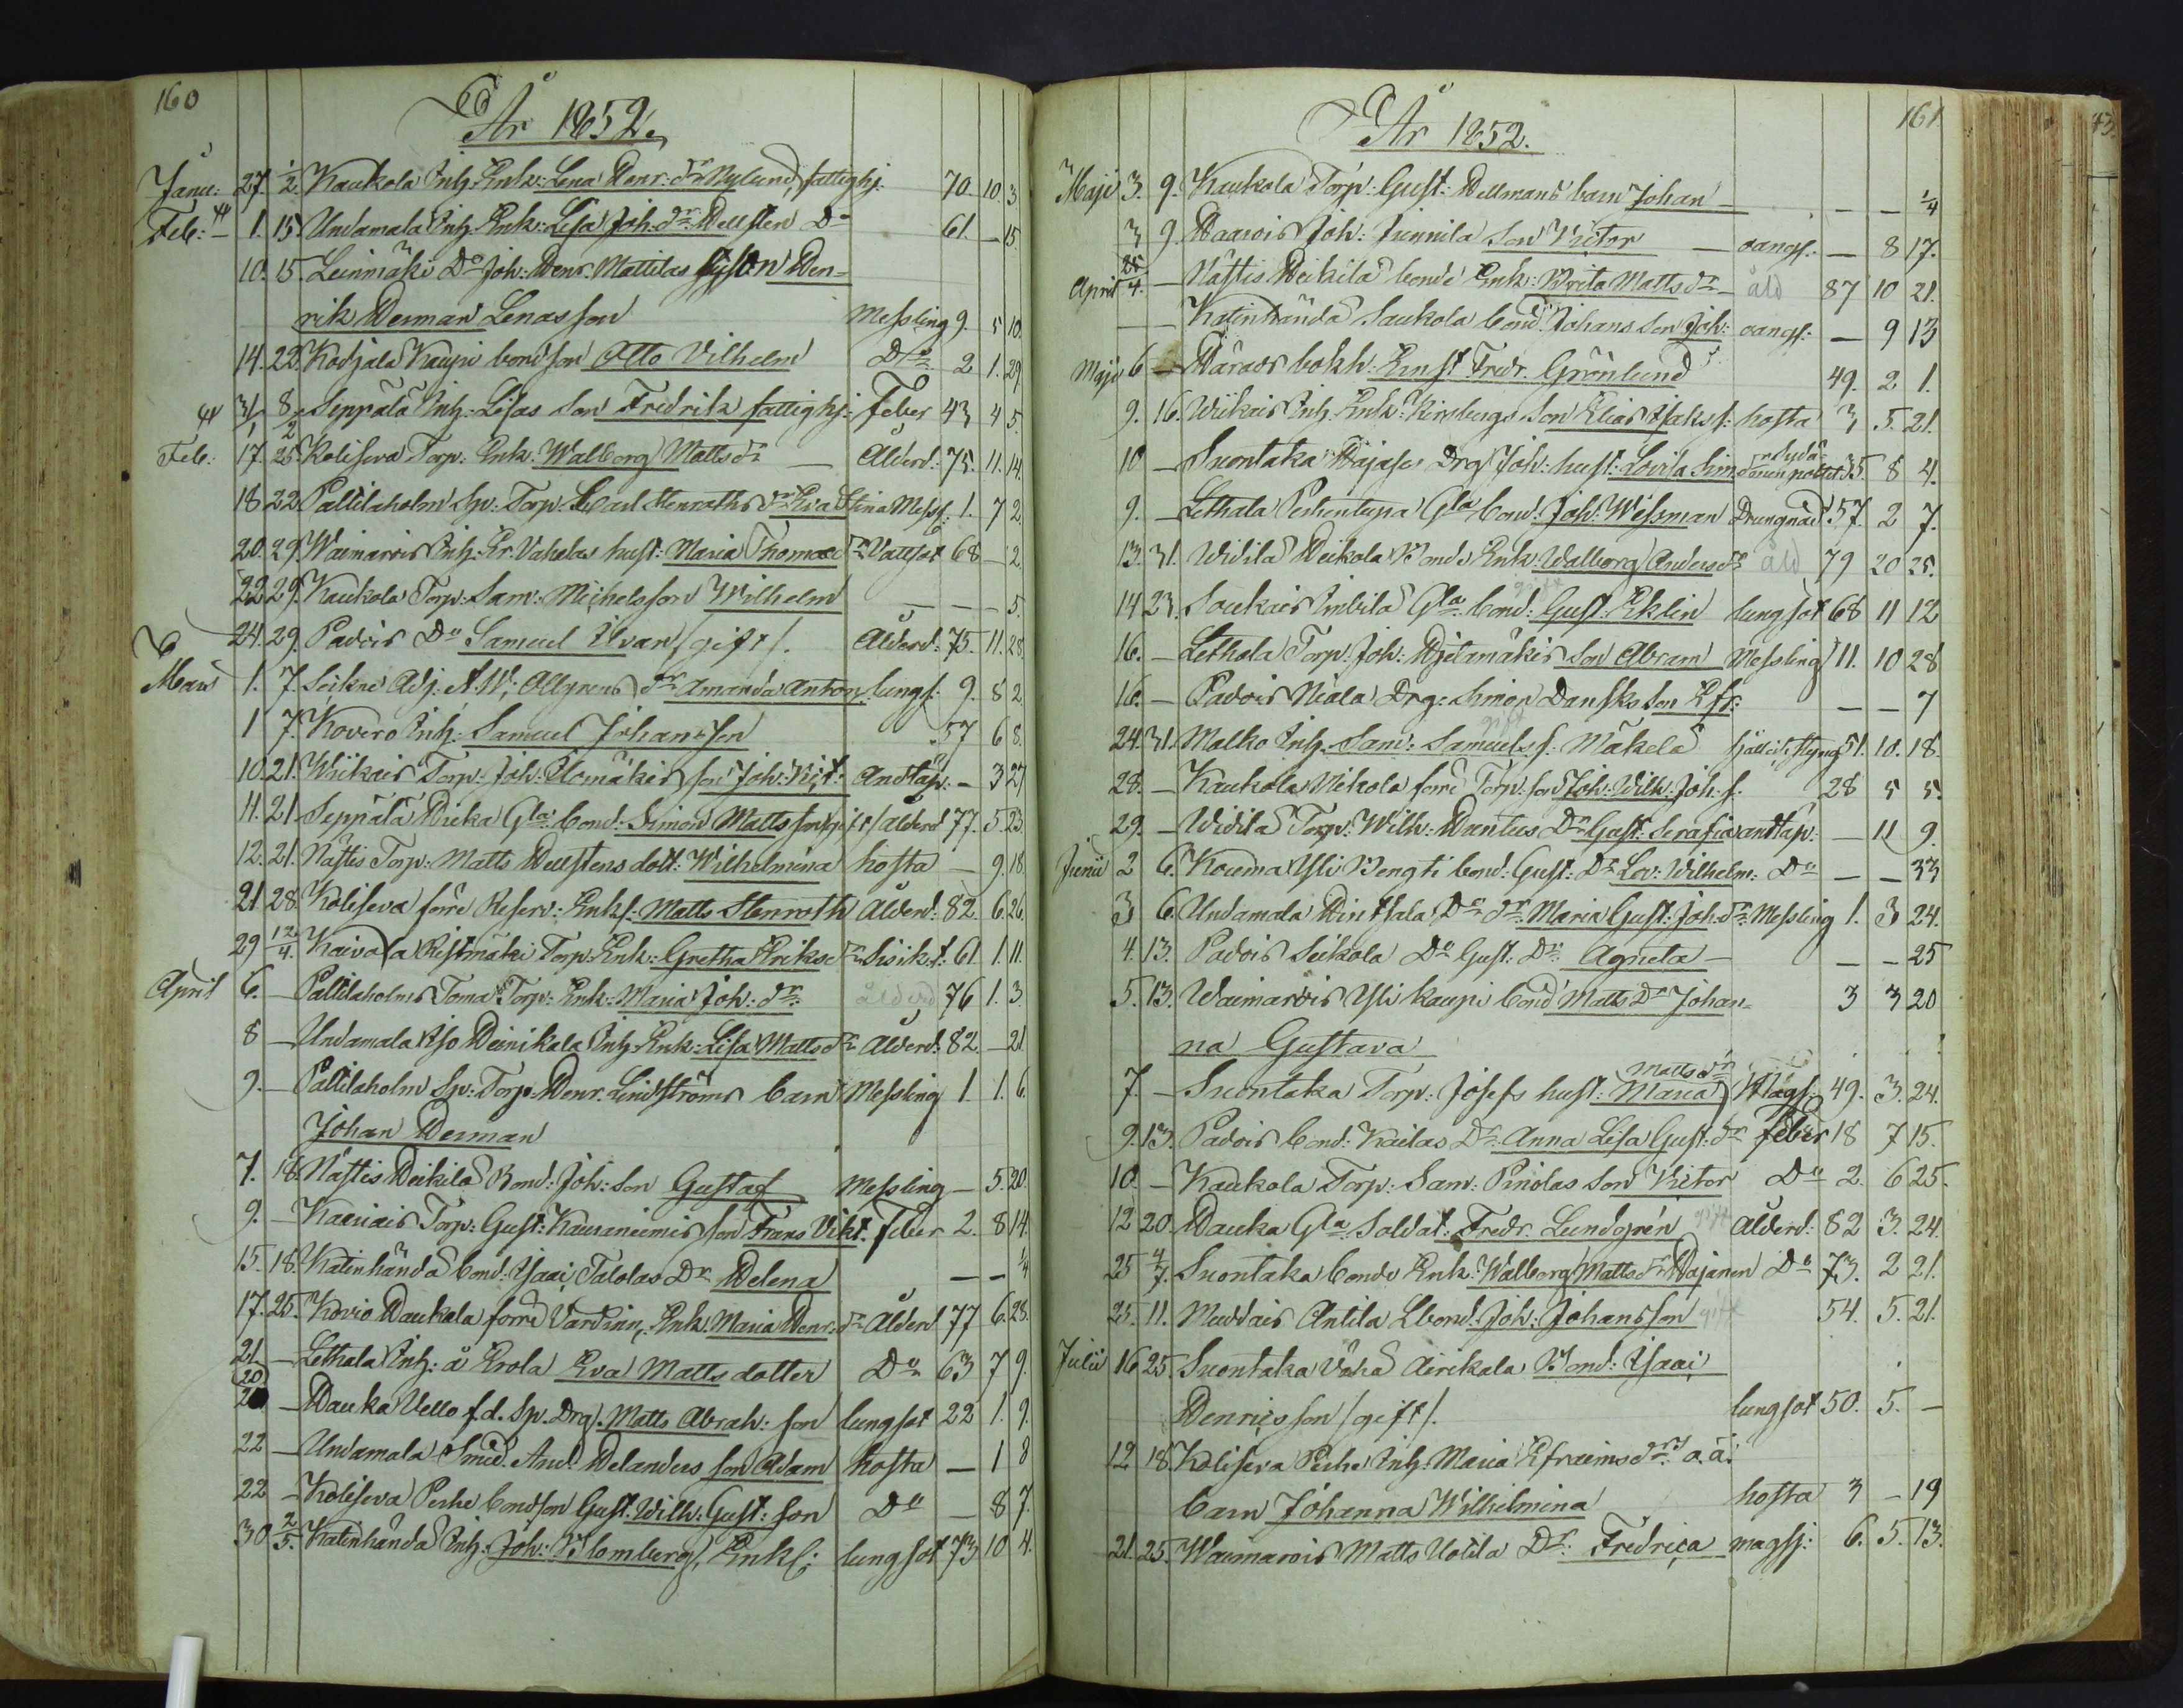 160
År 1852.
Janu: 27. 1/2. Kaukola Inh. Enk: Lena Henr: dr Nylund, fattighj. 70. 10. 3
Feb: 1. 15. Undamala Inh. Enk: Lisa Joh: dr Hellsten Do 61. – 15.
10. 15. Leinmäki Do Joh: Henr. Mattilas Hen=
rik Herman Lenasson Messling 9. 5 10.
14. 22. Kodjala Kaupi bond son Otto Vilhelm Do 2 1. 29
31/1 8/2 Seppälä Inh: Lisas son Fredrik fattighj: Feber 43 4 5.
Feb: 17. 25. Koliseva Torp: Enk. Walborg Matts dr — Ålderd: 75. 11. 14.
18 22 Paltilaholm Sp: Torp: Carl Stenroths dr Eva Stina Messl: 1. 7 2.
20. 29. Waimarois Inh: Er. Vahalas hust: Maria Thomæ dr Vattsot 68 – 12.
22 29. Kaukola Torp: Sam: Michelsson Wilhelm — — — 5.
24. 29. Padois Do Samuel Ilvan /gift/. Ålderd: 75. 11. 28.
Mars 1. 7. Seikne Adj: A. W. Allgrens dr Amanda Anton. lungs. 9. 8 2
1 7. Kovero Inh: Samuel Johansson 57 6 8.
10. 21. Wiikais Torp: Joh: Ilomäkis son Joh: Vikt: Andtäp: – 3 27
11. 21 Seppälä Wieka Gla bond: Simon Mattsson /gift/ ålderd 77. 5. 23.
12. 21. Nästis Torp: Matts Hellstens dott: Wilhelmina hosta — 9. 18.
21. 28. Koliseva förre Reserv: Enkl: Matts Stenroth Ålderd: 82. 6. 26.
29 12/4. Kaivola Ristimäki Torp: Enk: Gretha Eriks dr 61. 1. 11.
April 6. — Paltilaholms Toma Torp: Enk: Maria Joh: dr ålderd 76 1. 3.
8 — Undamala Iso Heinikala Inh: Enk: Lisa Matts dr Ålderd: 82. – 21.
9. — Paltilaholm Sp: Torp: Henr. Lindströms barn Messling 1. 1. 6.
Johan Herman
7. 18. Nästis Heikila Bond: Joh: son Gustaf Messling — 5. 20.
9. — Kaariais Torp: Gust: Kauraniemis son Frans Vikt. Feber 2. 8 14.
15. 18. Katinhända bond: Isaac Talolas Dr Helena — — 1/4
17. 25. Kovio Haukala förre Värdinn, Enk. Maria Henr: dr Ålderd 77 6. 28.
21. — Lethala Inh: å Erola Eva Matts dotter Do 63 7 9.
(20) — Hauka Uello f.d. Sp. Drg. Matts Abrah: son lungsot 22 1. 9.
22 — Undamala Smed And: Helanders son Adam hosta — 1 8
22 — Koliseva Perhe bondson Gust. Wilh: Gust: son Do — 8 7.
30 2/5. Katinhända Inh: Joh: Blomberg, Enkl: lungsot 73 10 4.
161
År 1852.
Maji 3. 9. Kaukola Torp: Gust: Hellmans barn Johan — — — 1/4
3 9. Haarois Joh: Junnila son Victor — oangf: — 8 17.
April 25/4. — Nästis Heikilä bonde Enk: Brita Matts dr — åld 87 10 21.
— — Katinhända Saukola bond: Johans son Joh: oangf: — 9 13
Maji 6 — Häraos bokh. Ernst Fredr. Grönlund 49. 2 1.
9. 16. Wiikais Inh: Enk: son Elias Isaks s: hosta 3 5. 21.
10 — Suontaka Hajases Drg Joh: hust: Lovisa Sim: dr 35. 8 4.
9. — Lethala Perhentupa Gla bond: Joh: Wessman Drungnad: 57. 2 7.
13. 31. Widilä Heikola Bonde Enk: Walborg Anders dr åld 79 20 25.
14 23. Soukais Inkilä Gla bond: Gust: Eklin gift lungsot 68 11 12
16. — Lethola Torp: Joh: Hjetamäkis son Abram Messling 11. 10 28
16. — Padois Niala Drg: Simon Dansks son Efr: — — 7
24. 31. Malko Inh: Sam: Samuels s. Mäkelä gift styng 51. 10. 18.
28. — Kaukola Nikola förre Torp: son Joh: Wilh: Joh. s. 28 5 5.
29. — Widilä Torp: Wilh: Huntus Dr Gust: Serafia andtäp: — 11 9.
Junii 2 6. Kouma Yli Bengti bond: Gust: Dr Lov: Wilhelm: Do — — 33
3 6. Undamala Hintsala Do dr: Maria Gust: Joh. dr Messling 1. 3 24.
4. 13. Padois Seikola Do Gust. Dr: Agneta — — — 25
5. 13. Waimarois Yli Kaupi bond Matts Dr Johan= 3 3 20
na Gustava
7. — Suontaka Torp: Josefs hust: Maria Matts dr 49. 3. 24.
9. 13. Padois bond: Kailas Dr: Anna Lisa Gust: dr Feber 18 7 15.
10. — Kaukola Torp: Sam: Pinolas son Victor Do 2. 6 25.
12 20. Hauka Gla Soldat: Fredr. Lundgrén gift Ålderd: 82 3. 24.
25 4/7. Suontaka bonde Enk: Walborg Matts dr Hajanen Do 73. 2 21.
25. 11. Muddais Antila Lbond: Joh: Johansson gift 54. 5. 21.
Julii 16 25 Suontaka Vähä Airikala Bond: Isaac
Henricsson /gift/. lungsot 50. 5. —
12 18. Koliseva Perhe Inh: Maria Efraims dr o. ä.
barn Johanna Wilhelmina hosta 3 – 19
21. 25. Waimarois Matts Uotila Dr: Fredrica magsj: 6. 5. 13.
43.